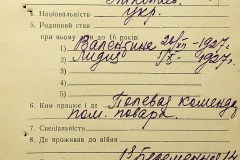 4. Національність укр.
5. Родинний стан
при ньому діти до 16 років:
1) Валентина 24/VII-1927г.
2) Лидия 1/X-1927г.
3)
4)
5)
6. Ким працює і де Полевая команда
пом. повара.
7. Спеціальність
8. Де проживав до війни